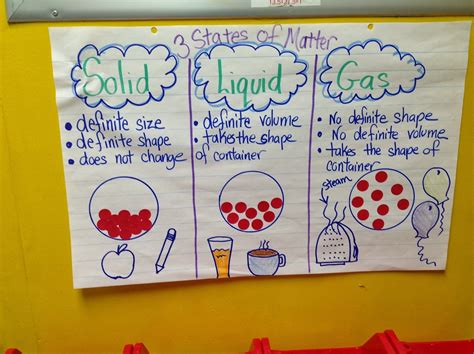 3 States of Matter
Solid
• definite size
• definite shape
• does not change
Liquid
• definite volume
• takes the shape
of container
Gas
• No definite shape
• No definite volume
• takes the shape of
container
steam